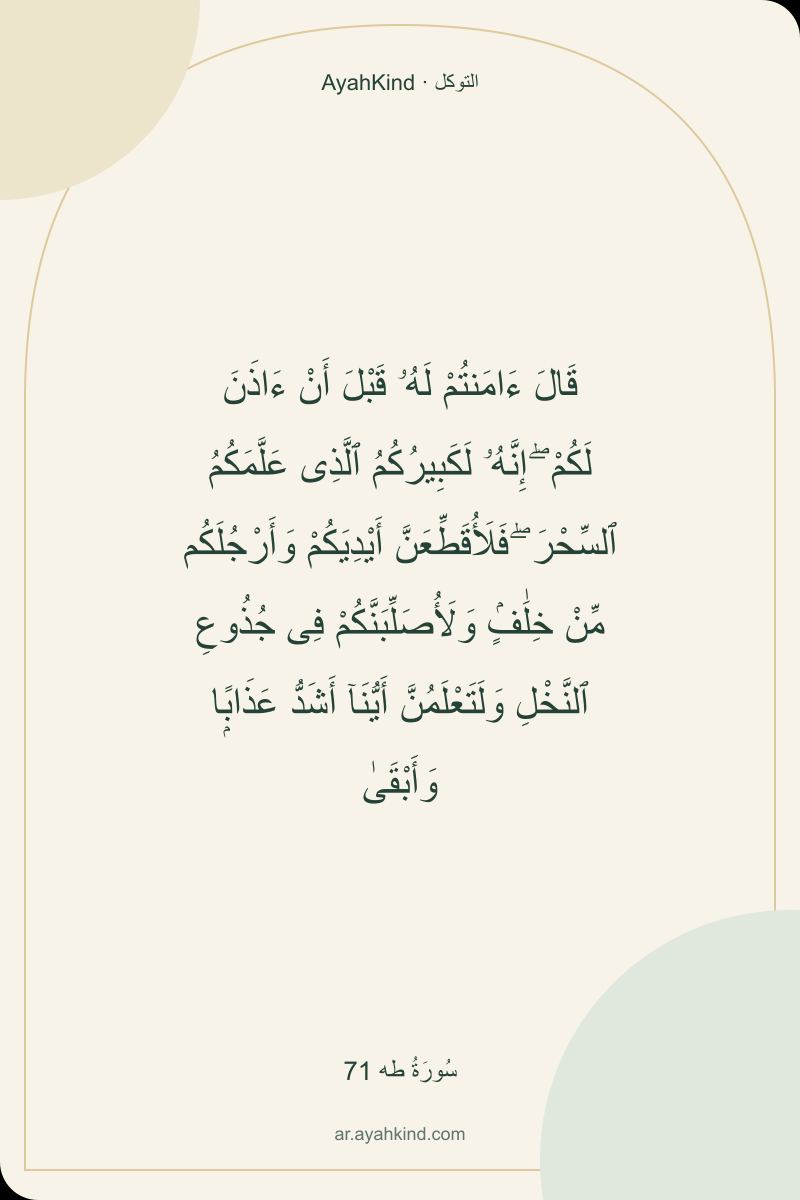 AyahKind · التوكل
قَالَ ءَامَنتُمْ لَهُۥ قَبْلَ أَنْ ءَاذَنَ
لَكُمْ ۖ إِنَّهُۥ لَكَبِيرُكُمُ ٱلَّذِى عَلَّمَكُمُ
ٱلسِّحْرَ ۖ فَلَأُقَطِّعَنَّ أَيْدِيَكُمْ وَأَرْجُلَكُم
مِّنْ خِلَٰفٍۢ وَلَأُصَلِّبَنَّكُمْ فِى جُذُوعِ
ٱلنَّخْلِ وَلَتَعْلَمُنَّ أَيُّنَآ أَشَدُّ عَذَابًۭا
وَأَبْقَىٰ
سُورَةُ طه 71
ar.ayahkind.com